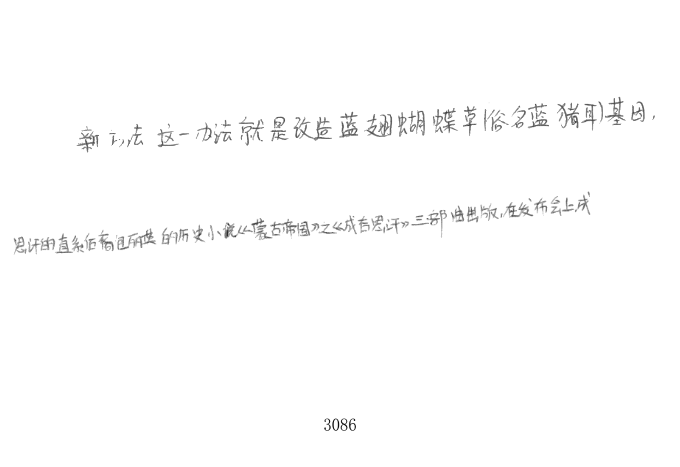 新办法 这一办法就是改造蓝翅蝴蝶草(俗名蓝猪耳)基因,
思汗的直系后裔包丽英的历史小说《蒙古帝国》之《成吉思汗》三部曲出版,在发布会上,成
3086